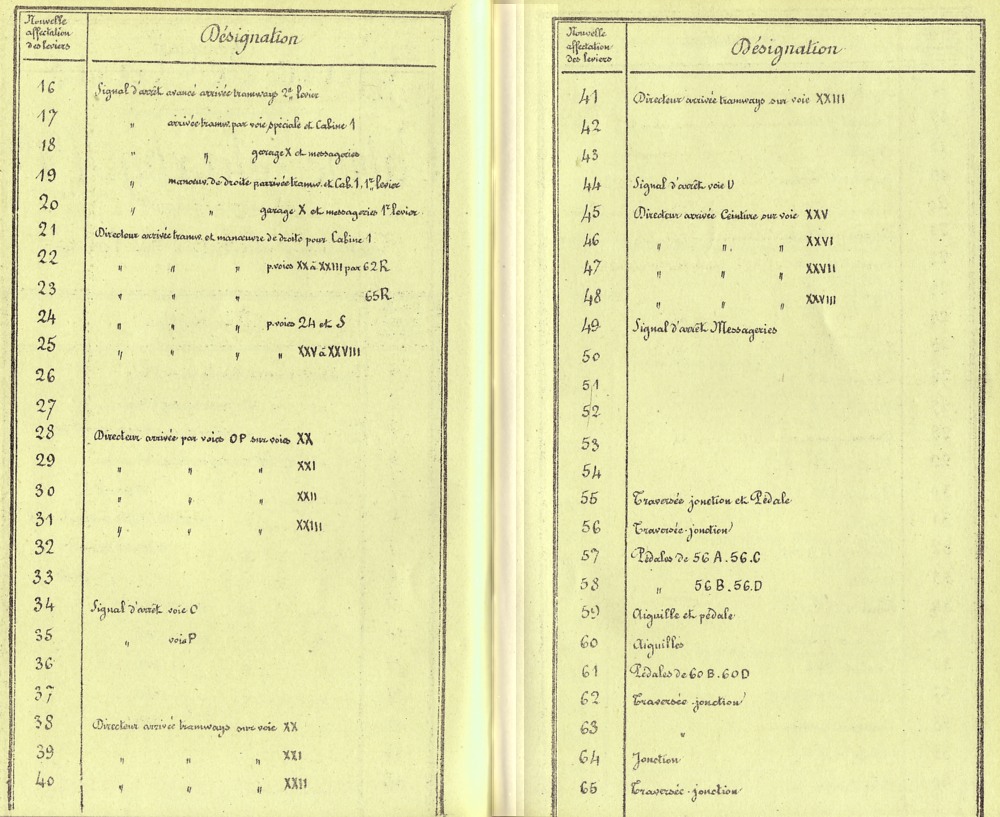 Nouvelle
affectation
des leviers
Désignation
16 Signal d'arrêt avancé arrivée tramways 2e levier
17 " arrivée tramw. par voie spéciale et Cabine 1
18 " " garage X et messageries
19 " manœuv. de droite p arrivée tramw. et Cab. 1, 1er levier
20 " " garage X et messageries 1er levier
21 Directeur arrivée tramw. et manœuvre de droite pour Cabine 1
22 " " " p. voies XX à XXIII par 62R
23 " " " 65R
24 " " " p. voies 24 et S
25 " " " " XXV à XXVIII
26
27
28 Directeur arrivée par voies OP sur voies XX
29 " " " XXI
30 " " " XXII
31 " " " XXIII
32
33
34 Signal d'arrêt voie O
35 " voie P
36
37
38 Directeur arrivée tramways sur voie XX
39 " " " XXI
40 " " " XXII
Nouvelle
affectation
des leviers
Désignation
41 Directeur arrivée tramways sur voie XXIII
42
43
44 Signal d'arrêt voie U
45 Directeur arrivée Ceinture sur voie XXV
46 " " " XXVI
47 " " " XXVII
48 " " " XXVIII
49 Signal d'arrêt Messageries
50
51
52
53
54
55 Traversée jonction et Pédale
56 Traversée-jonction
57 Pédales de 56 A. 56. C
58 " 56 B. 56. D
59 Aiguille et pédale
60 Aiguilles
61 Pédales de 60 B. 60 D
62 Traversée-jonction
63 "
64 Jonction
65 Traversée-jonction